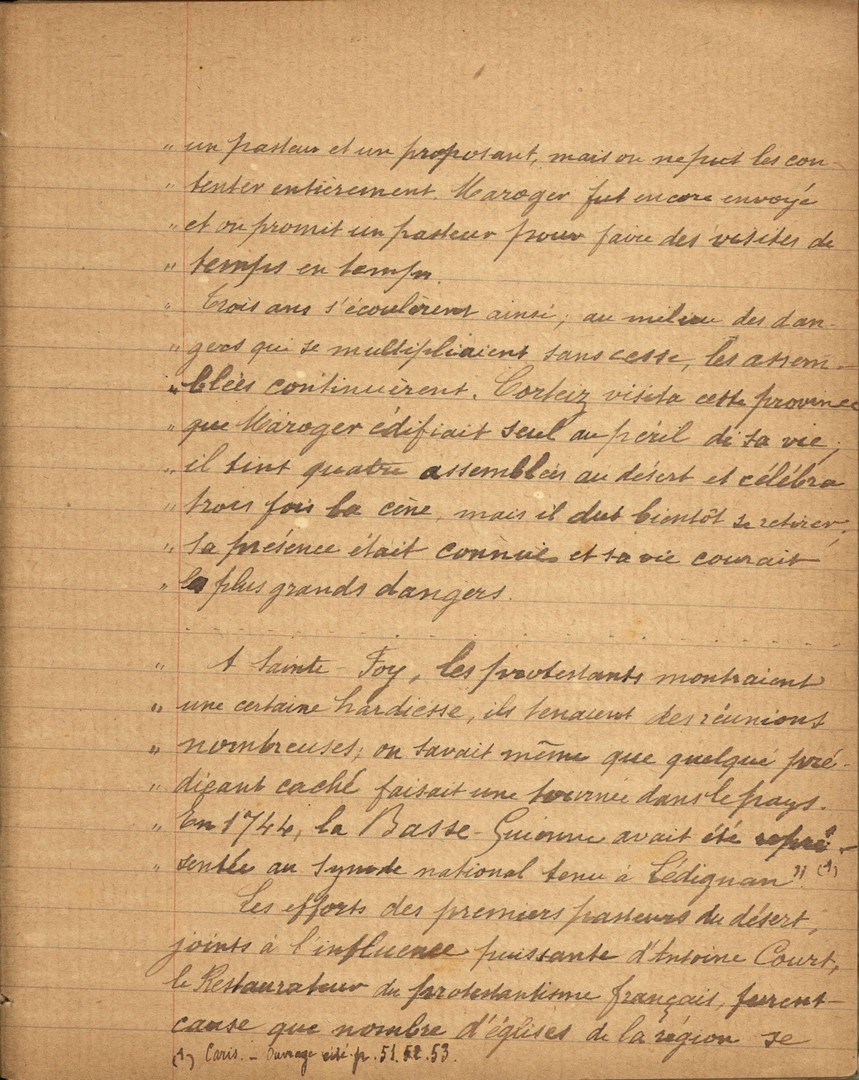 „ un pasteur et un proposant, mais on ne put les con-
„ tenter entièrement. Maroger fut encore envoyé
„ et on promit un pasteur pour faire des visites de
„ temps en temps.
„ Trois ans s'écoulèrent ainsi; au milieu des dan-
„ gers qui se multipliaient sans cesse, les assem-
„ blées continuèrent. Corteiz visita cette province
„ que Maroger édifiait seul au péril de sa vie;
„ il tint quatre assemblées au désert et célébra
„ trois fois la cène, mais il dut bientôt se retirer,
„ sa présence était connue et sa vie courait
„ les plus grands dangers.
„ A Sainte-Foy, les protestants montraient
„ une certaine hardiesse, ils tenaient des réunions
„ nombreuses; on savait même que quelque pré-
„ dicant caché faisait une tournée dans le pays.
„ En 1744, la Basse-Guienne avait été repré-
„ sentée au Synode national tenu à Lédignan" (1)
Les efforts des premiers pasteurs du désert,
joints à l'influence puissante d'Antoine Court,
le Restaurateur du protestantisme français, furent
cause que nombre d'églises de la région se
(1) Caris. - Ouvrage cité p. 51. 52. 53.